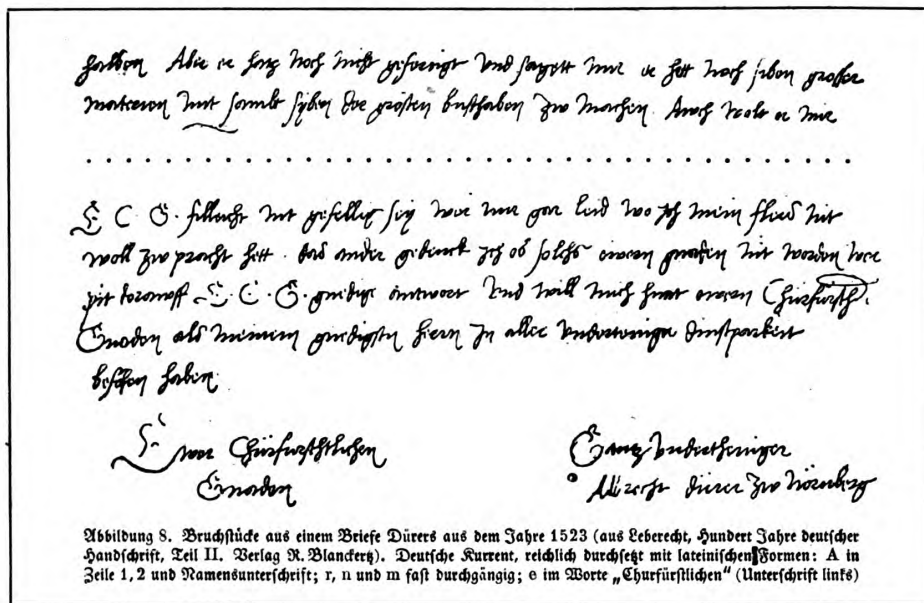 halben Aber er hatz noch nicht gefertigt und sagett mir er hett noch siben groser
mattereien mit sambt syben der grösten busthaben zw machen. Auch wolt er mir
. . . . . . . . . . . . . . . . . . . . . . . . . . . . . . . . . . . . . . . .
E C G. filleicht nit gefellig sey wer mir gar leid wo jch mein fleis nit
woll zw pracht hett. das ander gedenck jch ob solchs ewern gnaden nit worden wer
pit dorawff E. C. G. gnedige antwort Und will mich hymit ewern Churfursth.
Gnaden als meinem gnedigsten hern jn aller underteniger dinstparkeit
befolhen haben.
E wer Churfurschtlichen
Gnaden
Gantz undertheniger
Albrecht dürer zw Nörmberg
Abbildung 8. Bruchstücke aus einem Briefe Dürers aus dem Jahre 1523 (aus Leberecht, Hundert Jahre deutscher
Handschrift, Teil II. Verlag R. Blanckertz). Deutsche Kurrent, reichlich durchsetzt mit lateinischen Formen: A in
Zeile 1, 2 und Namensunterschrift; r, n und m fast durchgängig; e im Worte „Churfürstlichen“ (Unterschrift links)